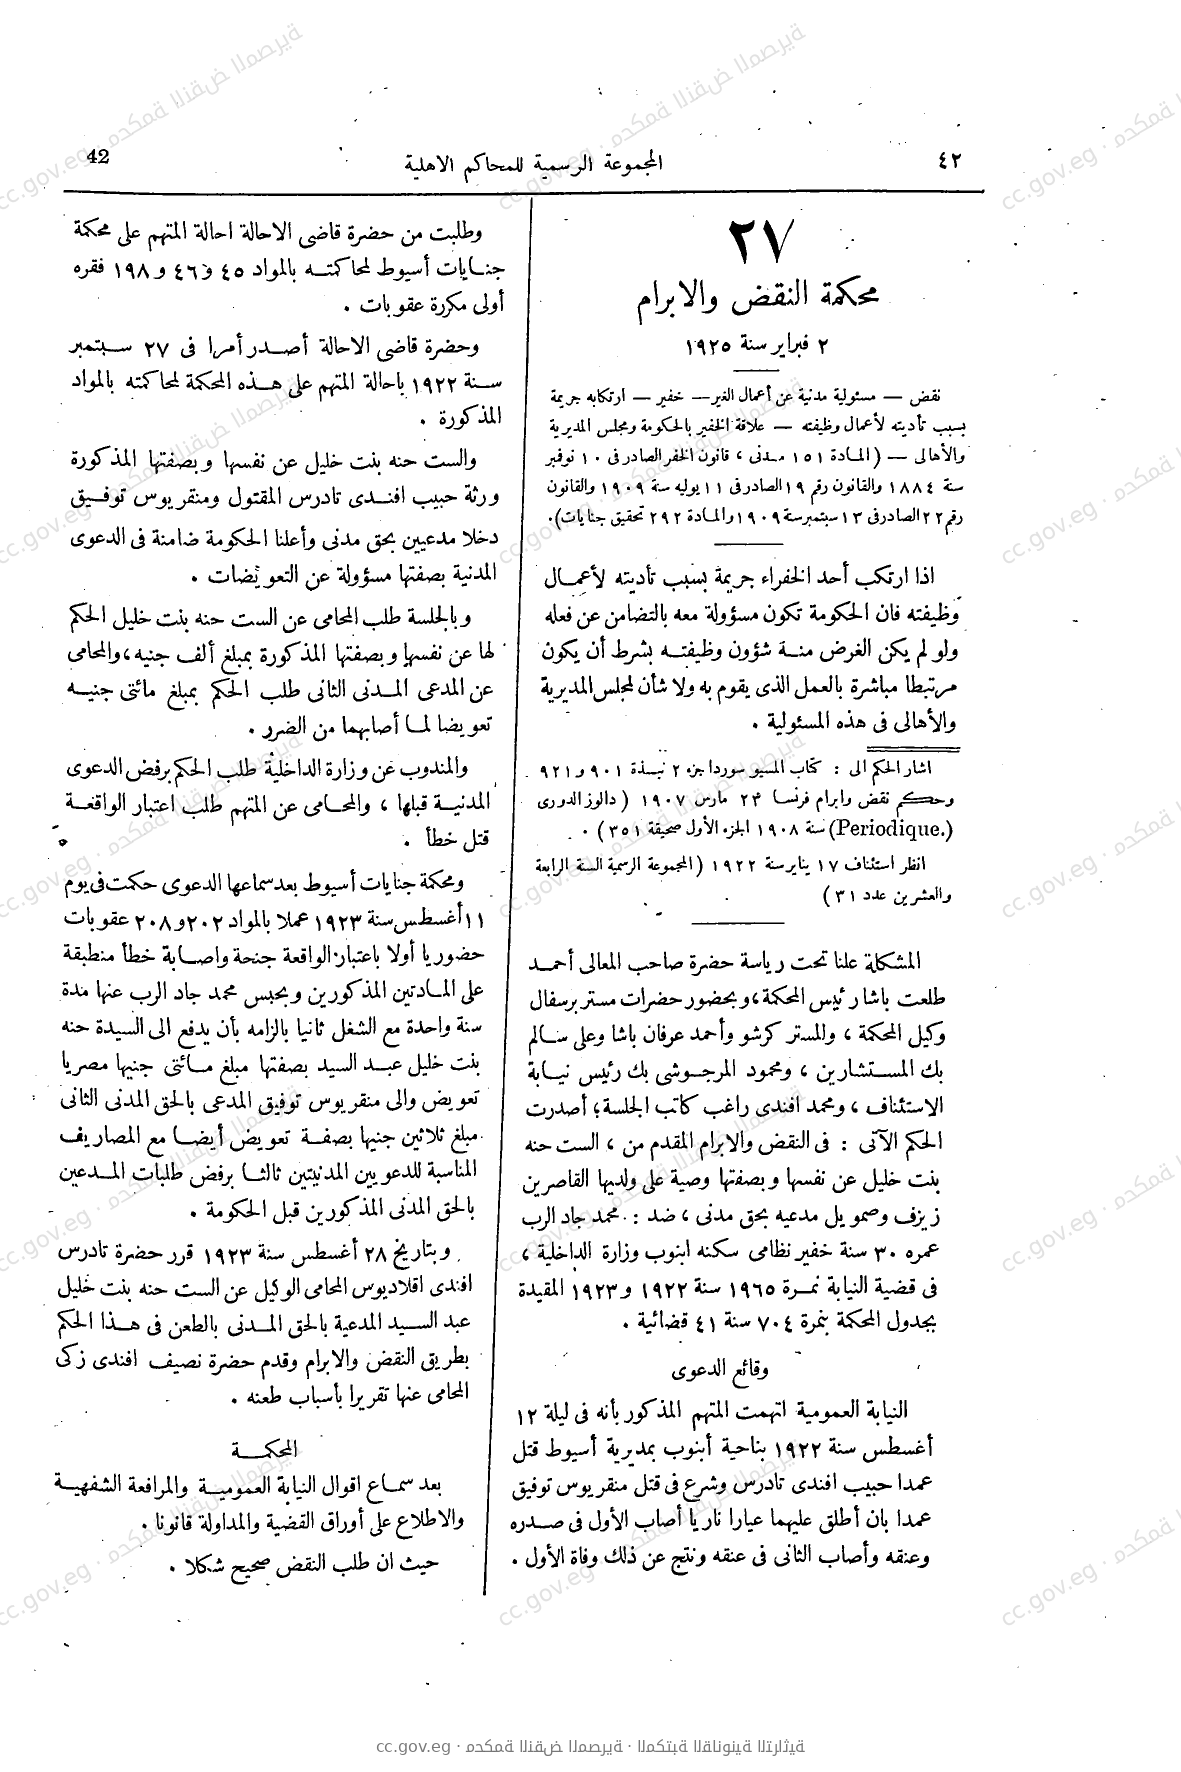 ٤٢
المجموعة الرسمية للمحاكم الاهلية
42
٢٧
محكمة النقض والابرام
٢ فبراير سنة ١٩٢٥
نقض — مسئولية مدنية عن أعمال الغير — خفير — ارتكابه جريمة
بسبب تأديته لأعمال وظيفته — علاقة الخفير بالحكومة ومجلس المديرية
والأهالى — (المادة ١٥١ مدنى ، قانون الخفر الصادر فى ١٠ نوفمبر
سنة ١٨٨٤ والقانون رقم ١٩ الصادر فى ١١ يوليه سنة ١٩٠٩ والقانون
رقم ٢٢ الصادر فى ١٣ سبتمبر سنة ١٩٠٩ والمادة ٢٩٢ تحقيق جنايات).
اذا ارتكب أحد الخفراء جريمة بسبب تأديته لأعمال
وظيفته فان الحكومة تكون مسؤولة معه بالتضامن عن فعله
ولو لم يكن الغرض منه شؤون وظيفته بشرط أن يكون
مرتبطا مباشرة بالعمل الذى يقوم به ولا شأن لمجلس المديرية
والأهالى فى هذه المسئولية .
اشار الحكم الى : كتاب المسيو سوردا جزء ٢ نبذة ٩٠١ و ٩٢١
وحكم نقض وابرام فرنسا ٢٣ مارس ١٩٠٧ (دالوز الدورى
(Periodique.) سنة ١٩٠٨ الجزء الأول صحيفة ٣٥١) .
انظر استئناف ١٧ يناير سنة ١٩٢٢ (المجموعة الرسمية السنة الرابعة
والعشرين عدد ٣١)
المشكلة علنا تحت رياسة حضرة صاحب المعالى أحمد
طلعت باشا رئيس المحكمة، وبحضور حضرات مستر برسفال
وكيل المحكمة ، والمستر كرشو وأحمد عرفان باشا وعلى سالم
بك المستشارين ، ومحمود المرجوشى بك رئيس نيابة
الاستئناف ، ومحمد افندى راغب كاتب الجلسة؛ أصدرت
الحكم الآتى : فى النقض والابرام المقدم من ، الست حنه
بنت خليل عن نفسها وبصفتها وصية على ولديها القاصرين
زيزف وصمويل مدعيه بحق مدنى ، ضد : محمد جاد الرب
عمره ٣٠ سنة خفير نظامى سكنه ابنوب وزارة الداخلية ،
فى قضية النيابة نمرة ١٩٦٥ سنة ١٩٢٢ و ١٩٢٣ المقيدة
بجدول المحكمة بنمرة ٧٠٤ سنة ٤١ قضائية .
وقائع الدعوى
النيابة العمومية اتهمت المتهم المذكور بأنه فى ليلة ١٢
أغسطس سنة ١٩٢٢ بناحية أبنوب بمديرية أسيوط قتل
عمدا حبيب افندى تادرس وشرع فى قتل منقريوس توفيق
عمدا بان أطلق عليهما عيارا ناريا أصاب الأول فى صدره
وعنقه وأصاب الثانى فى عنقه ونتج عن ذلك وفاة الأول .
وطلبت من حضرة قاضى الاحالة احالة المتهم على محكمة
جنايات أسيوط لمحاكمته بالمواد ٤٥ و ٤٦ و ١٩٨ فقره
أولى مكررة عقوبات .
وحضرة قاضى الاحالة أصدر أمرا فى ٢٧ سبتمبر
سنة ١٩٢٢ باحالة المتهم على هذه المحكمة لمحاكمته بالمواد
المذكورة .
والست حنه بنت خليل عن نفسها وبصفتها المذكورة
ورثة حبيب افندى تادرس المقتول ومنقريوس توفيق
دخلا مدعيين بحق مدنى وأعلنا الحكومة ضامنة فى الدعوى
المدنية بصفتها مسؤولة عن التعويضات .
وبالجلسة طلب المحامى عن الست حنه بنت خليل الحكم
لها عن نفسها وبصفتها المذكورة بمبلغ ألف جنيه، والمحامى
عن المدعى المدنى الثانى طلب الحكم بمبلغ مائتى جنيه
تعويضا لما أصابهما من الضرر .
والمندوب عن وزارة الداخلية طلب الحكم برفض الدعوى
المدنية قبلها ، والمحامى عن المتهم طلب اعتبار الواقعة
قتل خطأ .
ومحكمة جنايات أسيوط بعد سماعها الدعوى حكمت فى يوم
١١ أغسطس سنة ١٩٢٣ عملا بالمواد ٢٠٢ و ٢٠٨ عقوبات
حضوريا أولا باعتبار الواقعة جنحة واصابة خطأ منطبقة
على المادتين المذكورين وبحبس محمد جاد الرب عنها مدة
سنة واحدة مع الشغل ثانيا بالزامه بأن يدفع الى السيدة حنه
بنت خليل عبد السيد بصفتها مبلغ مائتى جنيها مصريا
تعويض والى منقريوس توفيق المدعى بالحق المدنى الثانى
مبلغ ثلاثين جنيها بصفة تعويض أيضا مع المصاريف
المناسبة للدعويين المدنيتين ثالثا برفض طلبات المدعين
بالحق المدنى المذكورين قبل الحكومة .
وبتاريخ ٢٨ أغسطس سنة ١٩٢٣ قرر حضرة تادرس
افندى اقلاديوس المحامى الوكيل عن الست حنه بنت خليل
عبد السيد المدعية بالحق المدنى بالطعن فى هذا الحكم
بطريق النقض والابرام وقدم حضرة نصيف افندى زكى
المحامى عنها تقريرا بأسباب طعنه .
المحكمة
بعد سماع اقوال النيابة العمومية والمرافعة الشفهية
والاطلاع على أوراق القضية والمداولة قانونا .
حيث ان طلب النقض صحيح شكلا .
cc.gov.eg · محكمة النقض المصرية · المكتبة القانونية التراثية